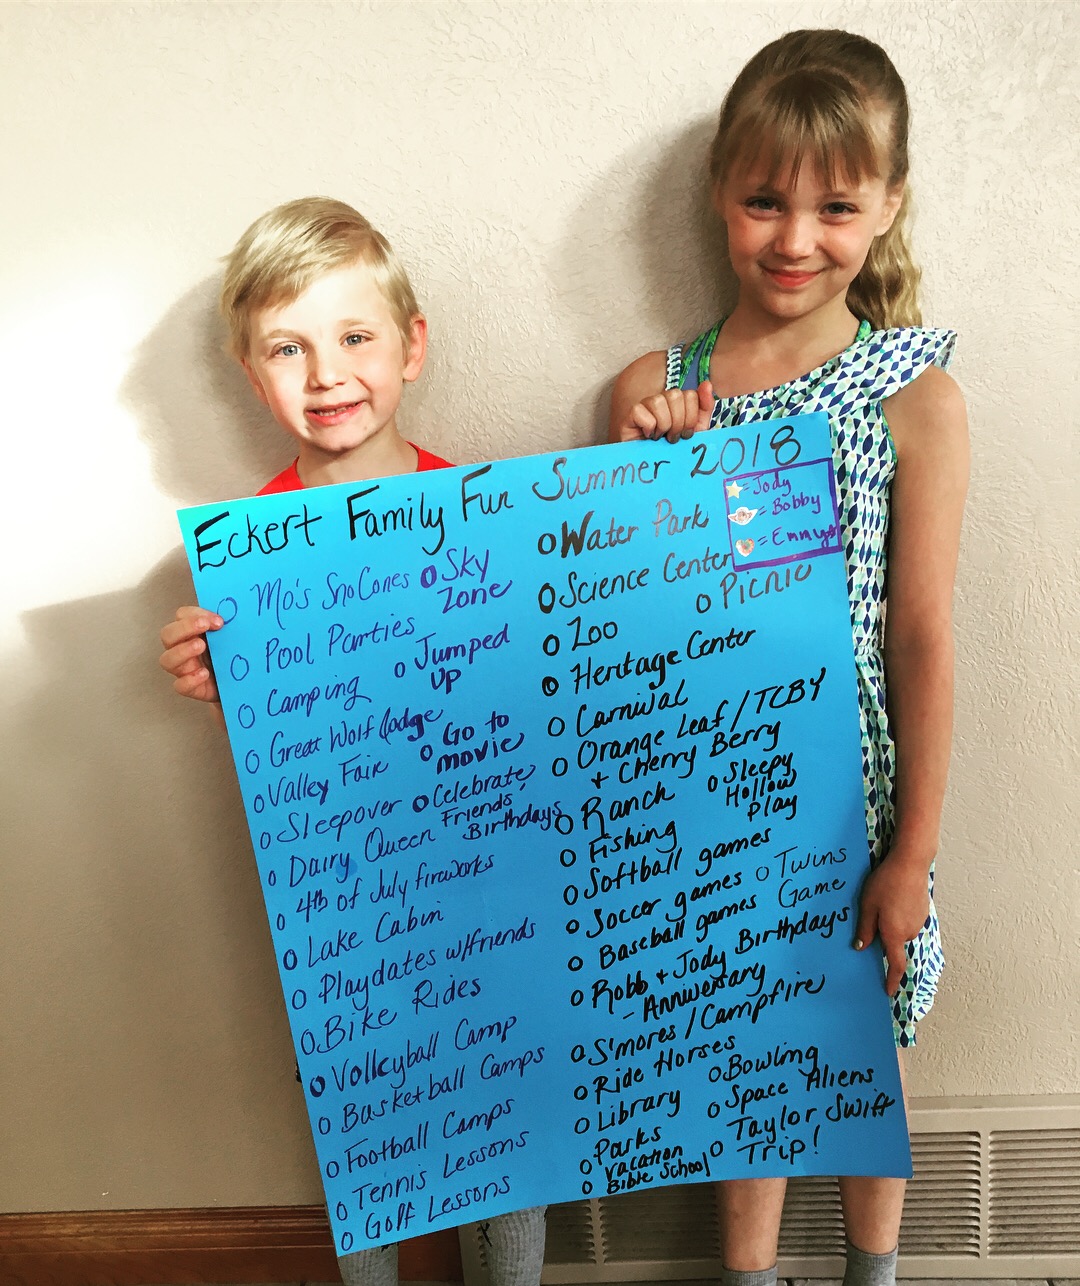 Eckert Family Fun Summer 2018
= Jody
= Bobby
= Emmy
O Mo's SnoCones
O Sky
Zone
O Pool Parties
O Jumped
up
O Camping
O Great Wolf Lodge
O Go to
movie
O Valley Fair
O Sleepover
O Celebrate
Friends,
Birthdays
O Dairy Queen
O 4th of July fireworks
O Lake Cabin
O Playdates w/friends
O Bike Rides
O Volleyball Camp
O Basketball Camps
O Football Camps
O Tennis Lessons
O Golf Lessons
O Water Park
O Science Center
O Picnic
O Zoo
O Heritage Center
O Carnival
O Orange Leaf / TCBY
+ Cherry Berry
O Ranch
O Sleepy
Hollow
Play
O Fishing
O Softball games
O Soccer games
O Twins
Game
O Baseball games
O Robb + Jody Birthdays
- Anniversary
O S'mores / Campfire
O Ride Horses
O Bowling
O Library
O Space Aliens
O Parks
O Taylor Swift
Trip!
O Vacation
Bible School